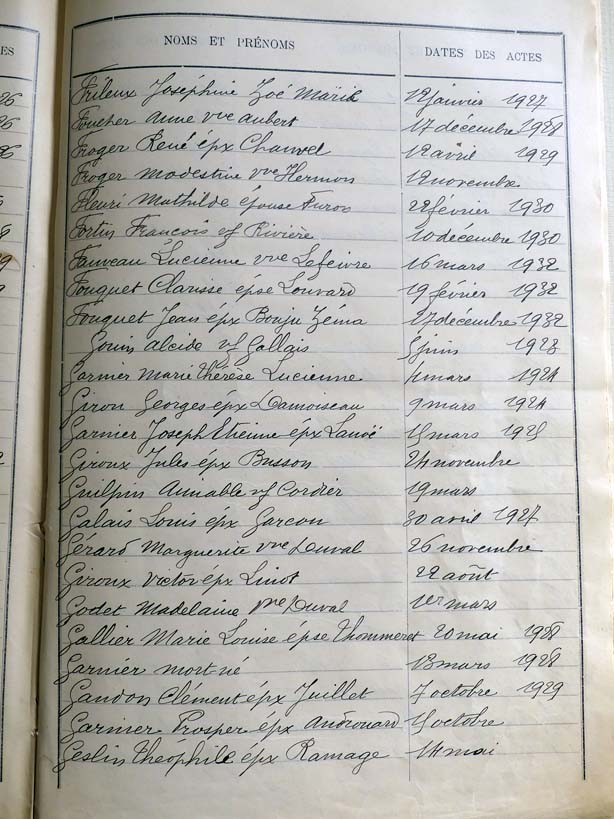 ES
NOMS ET PRÉNOMS DATES DES ACTES
Frileux Joséphine Zoé Marie 12 janvier 1927
Foucher Anne vve Aubert 17 décembre 1928
Froger René épx Chauvel 12 avril 1929
Froger Modestine vve Hermon 12 novembre
Fleuri Mathilde épouse Furon 22 février 1930
Fortin François vf Rivière 10 décembre 1930
Fauveau Lucienne vve Lefeivre 16 mars 1932
Fouquet Clarisse épse Louvard 19 février 1932
Fouquet Jean épx Bouju Zéina 17 décembre 1932
Gouin Alcide vf Gallais 5 juin 1923
Garnier Marie Thérèse Lucienne 4 mars 1924
Giron Georges épx Damoiseau 9 mars 1924
Garnier Joseph Etienne épx Lanoë 15 mars 1925
Giroux Jules épx Busson 24 novembre
Guilpin Aimable vf Cordier 19 mars
Galais Louis épx Garcon 30 avril 1927
Gérard Marguerite vve Duval 26 novembre
Giroux Victor épx Linot 22 août
Godet Madelaine vve Duval 1er mars
Gallier Marie Louise épse Thommeret 20 mai 1928
Garnier mort né 13 mars 1928
Gandon Clément épx Juillet 7 octobre 1929
Garnier Prosper épx Androuard 15 octobre
Geslin Théophile épx Ramage 14 mai